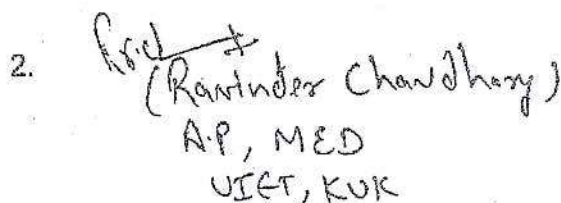 2.
(Ravinder Chaudhary)
A.P, MED
UIET, KUK